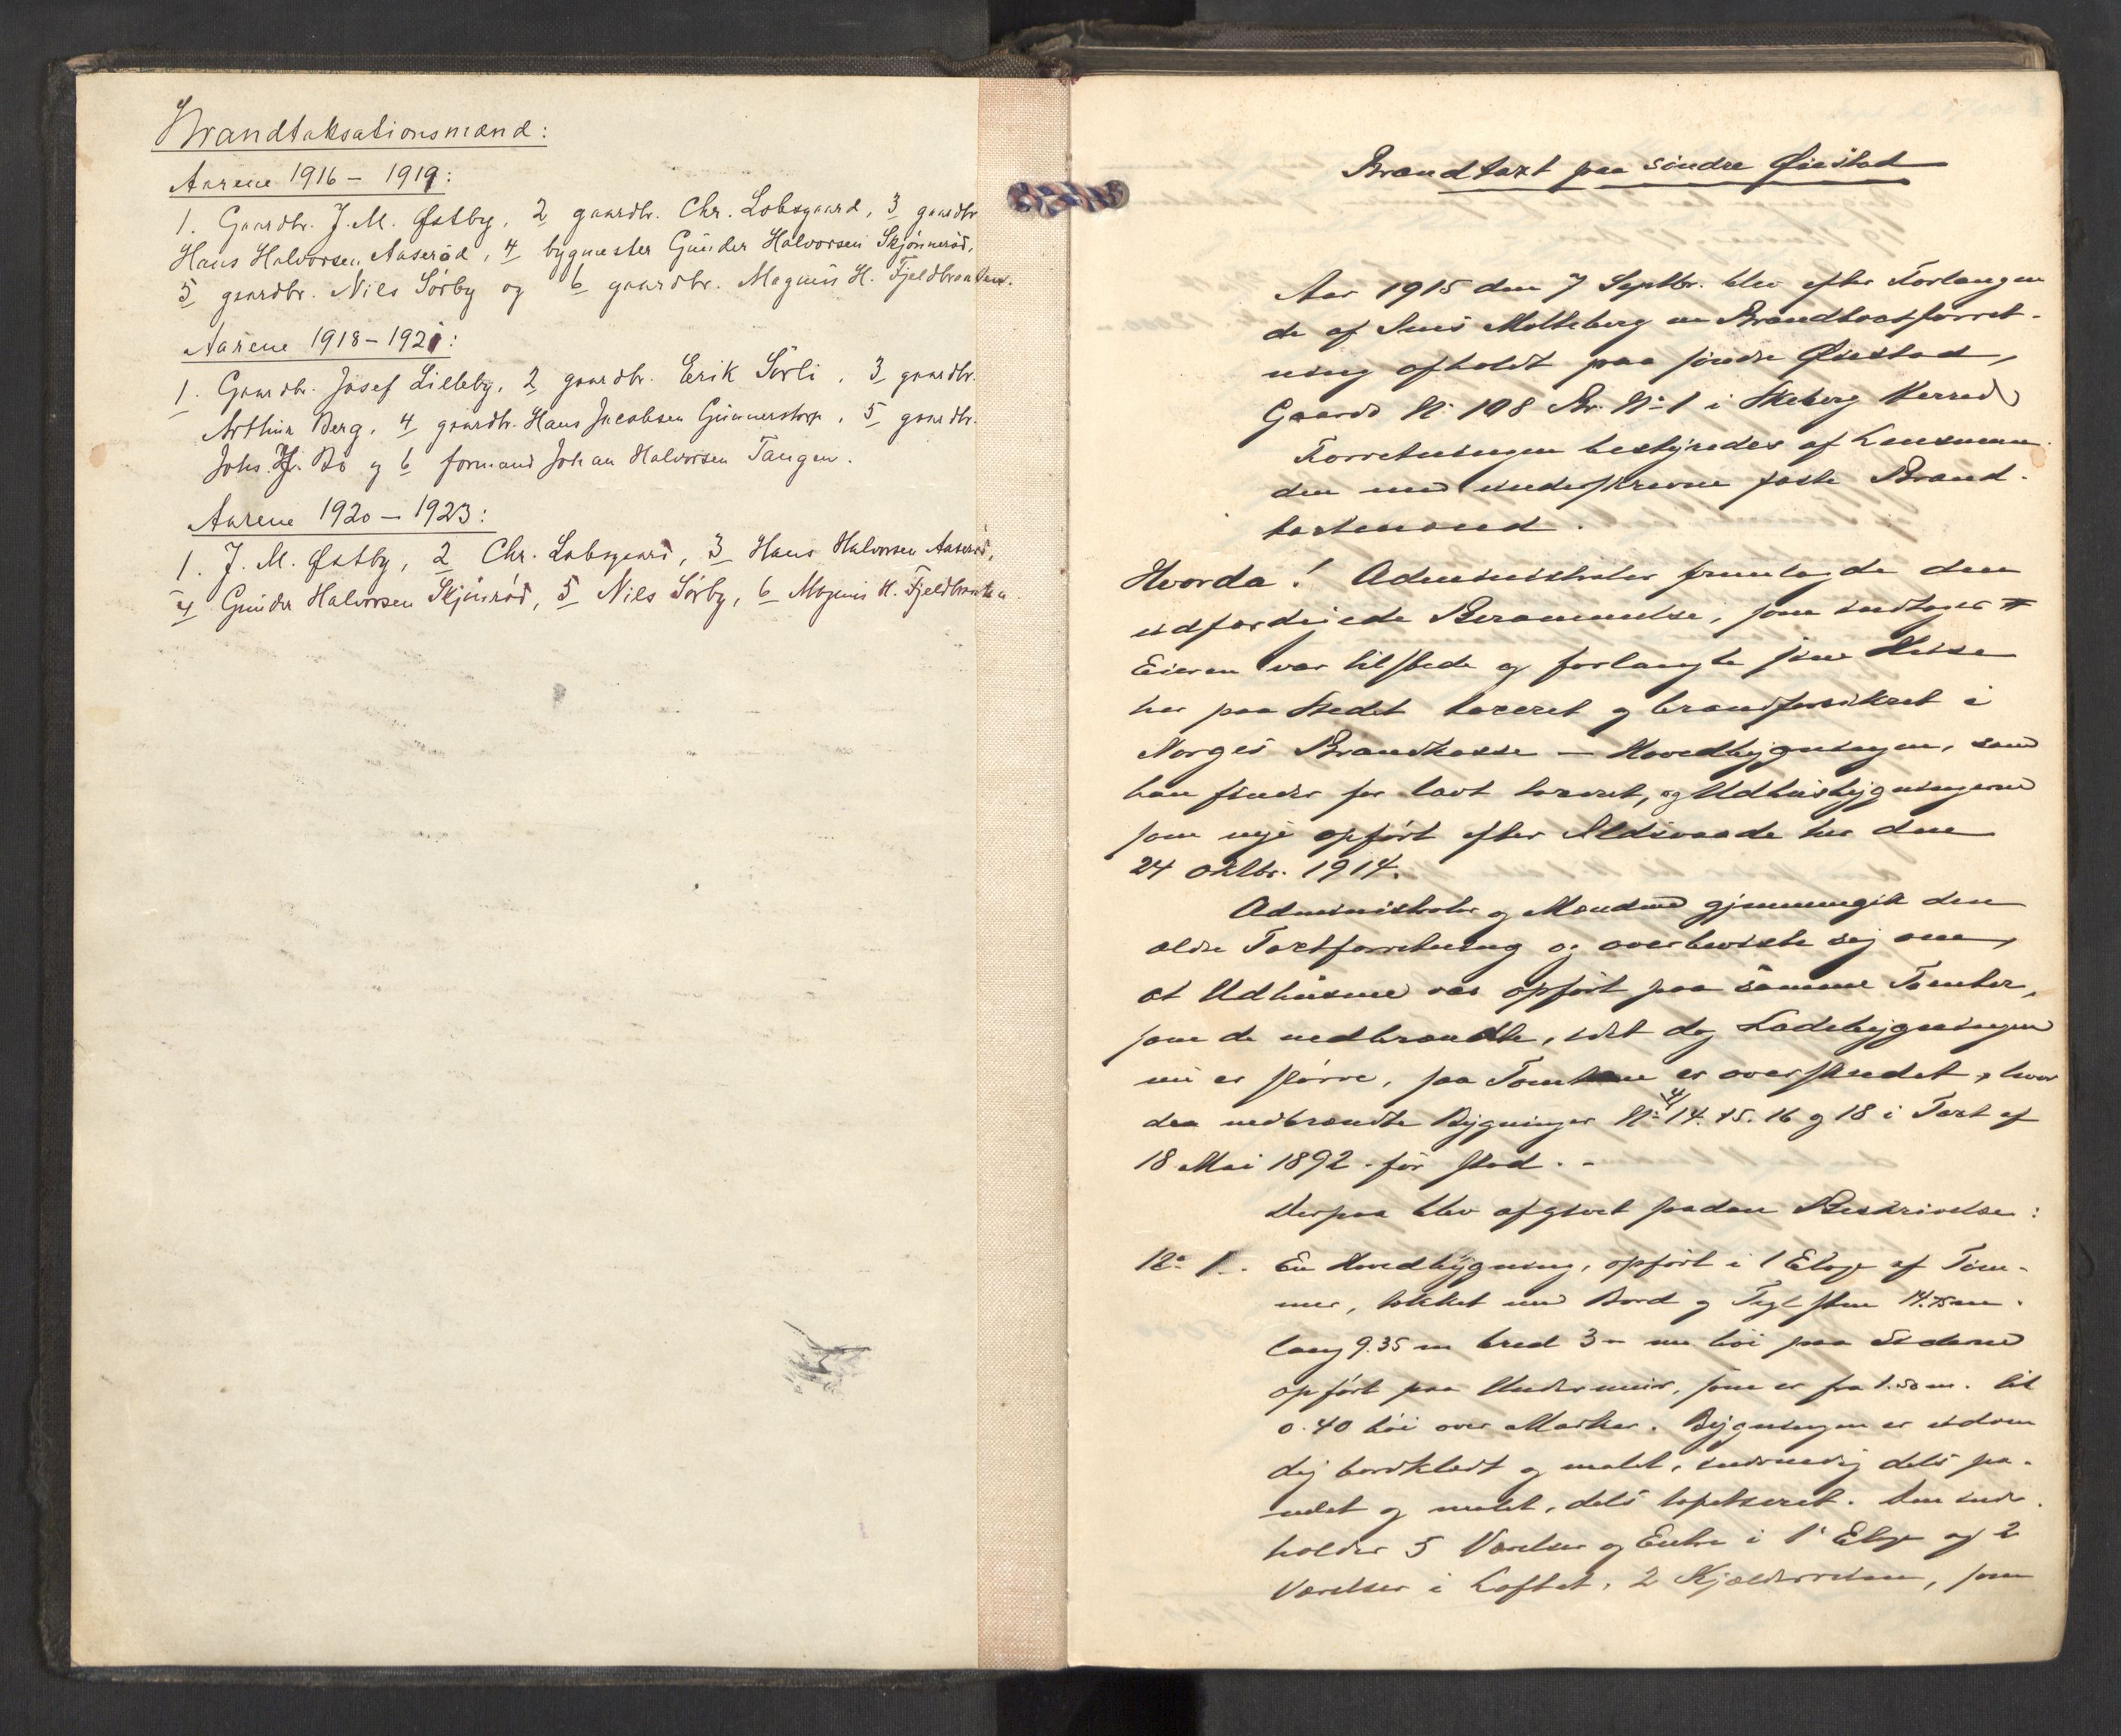 Brandtaksationsmænd:
Aarene 1916 – 1919:
1. Gaardbr. J. M. Østby, 2 gaardbr. Chr. Lobsgaard, 3 gaardbr
Hans Halvorsen Aaseröd, 4 bygmester Günder Halvorsen Skjönneröd,
5 gaardbr. Nils Sörby og 6 gaardbr. Magnus H. Fjeldbraaten.
Aarene 1918 – 1921:
1. Gaardbr. Josef Lilleby, 2 gaardbr. Erik Sörli, 3 gaardbr.
Arthur Berg, 4 gaardbr. Hans Jacobsen Gunnerstorp, 5 gaardbr.
Johs. Bö og 6 formand Johan Halvorsen Tangen.
Aarene 1920 – 1923:
1. J. M. Østby, 2 Chr. Lobsgaard, 3 Hans Halvorsen Aaseröd,
4 Günder Halvorsen Skjönröd, 5 Nils Sörby, 6 Magnus H. Fjeldbraaten.
Brandtaxt paa söndre Øiestad
Aar 1915 den 7 Septbr. blev efter Forlangen
de af Jens Molteberg en Brandtaxtforret-
ning afholdt paa söndre Øiestad,
Gaards No 108 Br. No 1 i Skeberg Herred
Forretningen bestyredes af Lensman
den med underskrevne faste Brand-
taxtmænd.
Hvorda! Administrator fremlagde den
udfærdigede Berammelse, som indtages #
Eieren var tilstede og forlangte sine Huse
her paa Stedet taxeret og brandforsikret i
Norges Brandkasse – Hovedbygningen, som
han finder for lavt taxeret, og Udhusbygningerne
som nye opfört efter Ildsvaade her den
24 oktbr. 1914.
Administrator og Mændene gjennemgik den
ældre Taxtforretning og overbeviste sig om,
at Udhusene var opfört paa samme Tomter,
som de nedbrændte, idet dog Ladebygningen
nu er större, saa Tomten er overskredet, hvor
de nedbrændte Bygninger No 14. 15. 16 og 18 i Taxt af
18 Mai 1892 för stod. -
Derpaa blev afgivet saadan Beskrivelse:
No 1. En Hovedbygning, opfört i 1 Etage af Töm-
mer, tækket med Bord og Teglsten 14.75 m.
lang 9.35 m bred 3 m höi paa Siderne
opfört paa Undermur, som er fra 1.50 m. til
0.40 höi over Marken. Bygningen er udven
dig bordklædt og malet, indvendig dels pa-
nelet og malet, dels tapetseret. Den inde-
holder 5 Værelser og Entre i 1' Etage og 2
Værelser i Loftet, 2 Kjælderrum, som